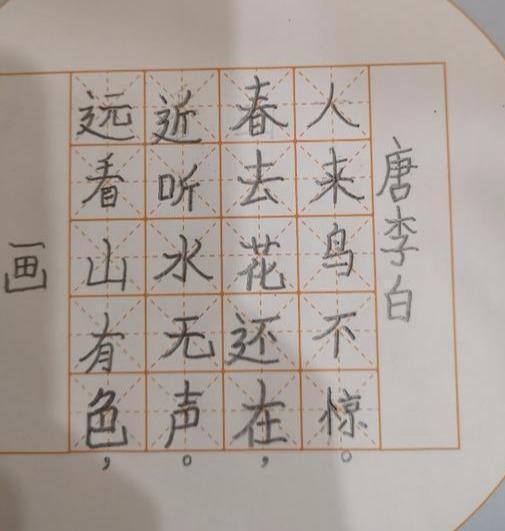 画
远看山有色，
近听水无声。
春去花还在，
人来鸟不惊。
唐李白